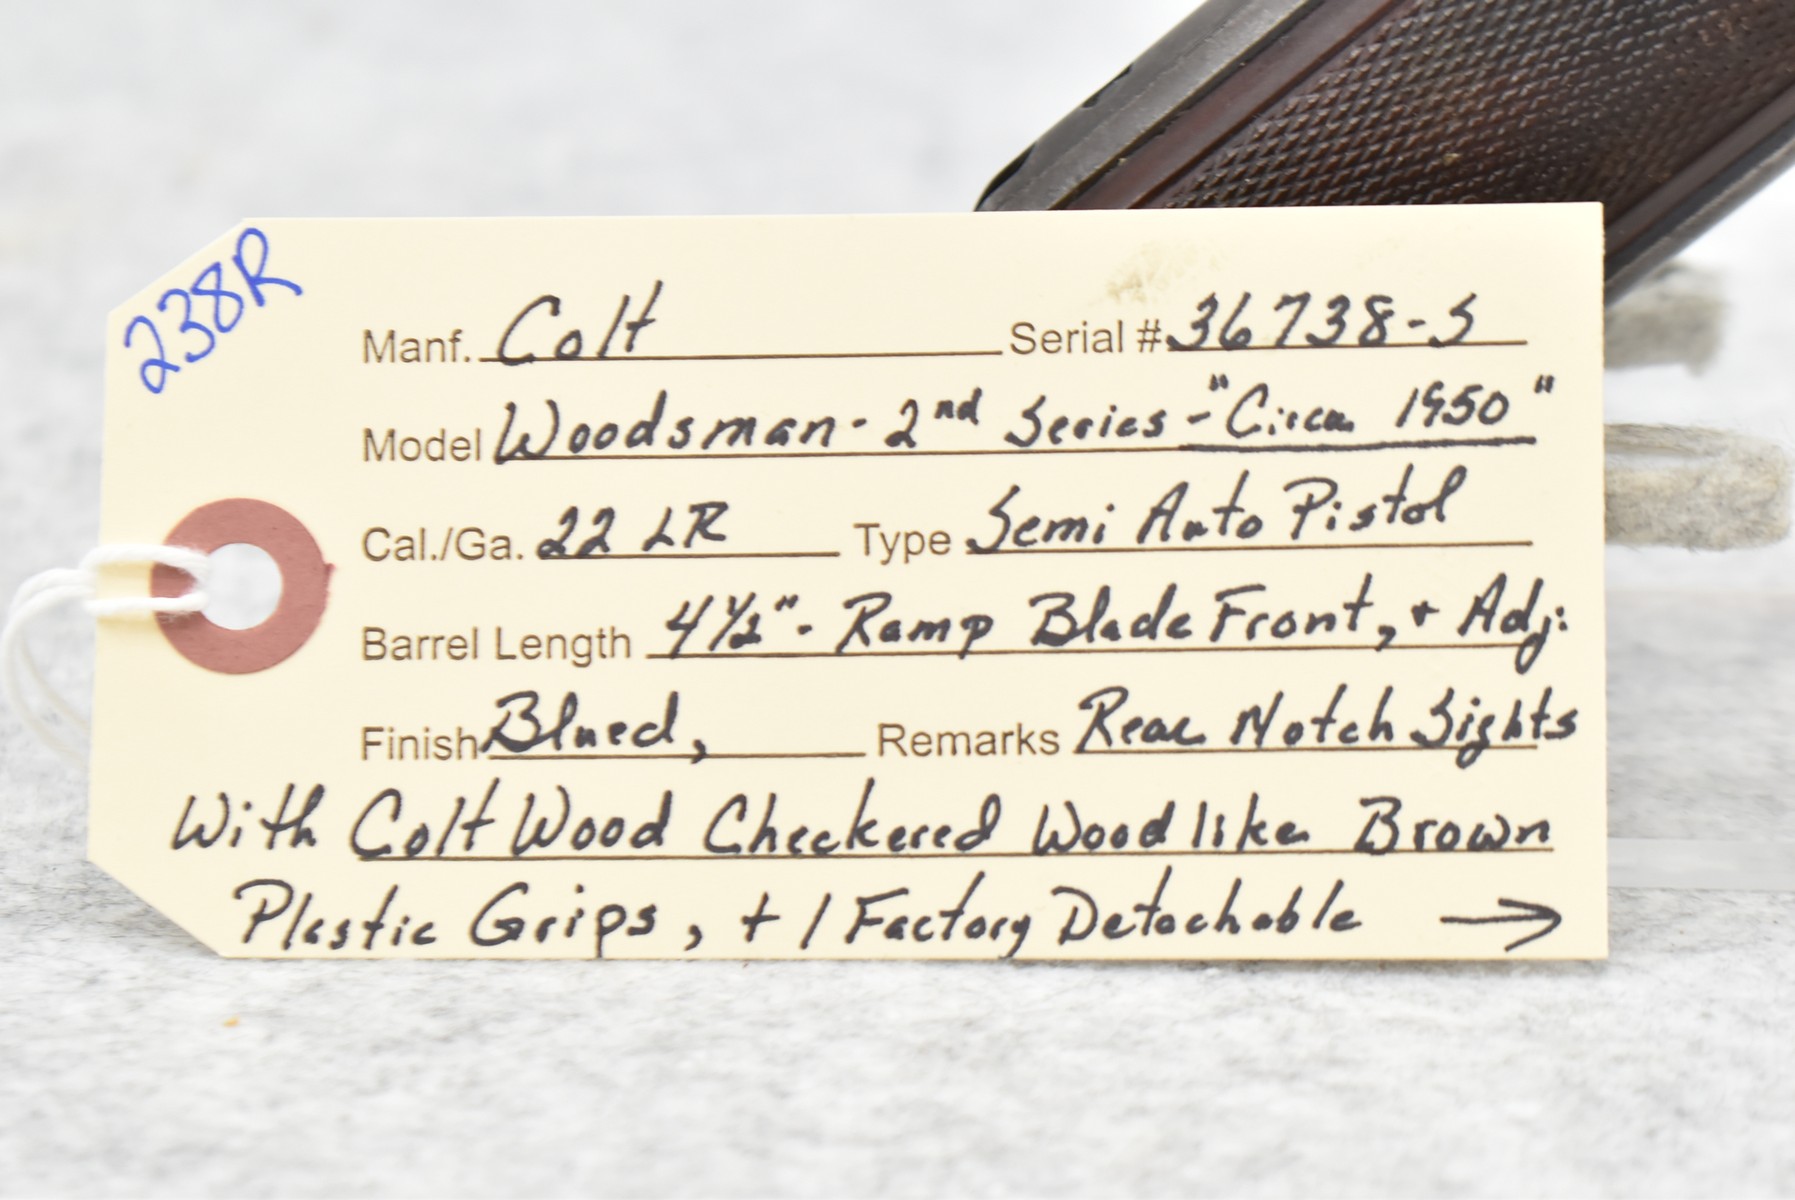 238R
Manf. Colt Serial # 36738-S
Model Woodsman - 2nd Series - "Circa 1950"
Cal./Ga. 22 LR Type Semi Auto Pistol
Barrel Length 4½" - Ramp Blade Front, + Adj:
Finish Blued, Remarks Rear Notch Sights
With Colt Wood Checkered Woodlike Brown
Plastic Grips, + 1 Factory Detachable →